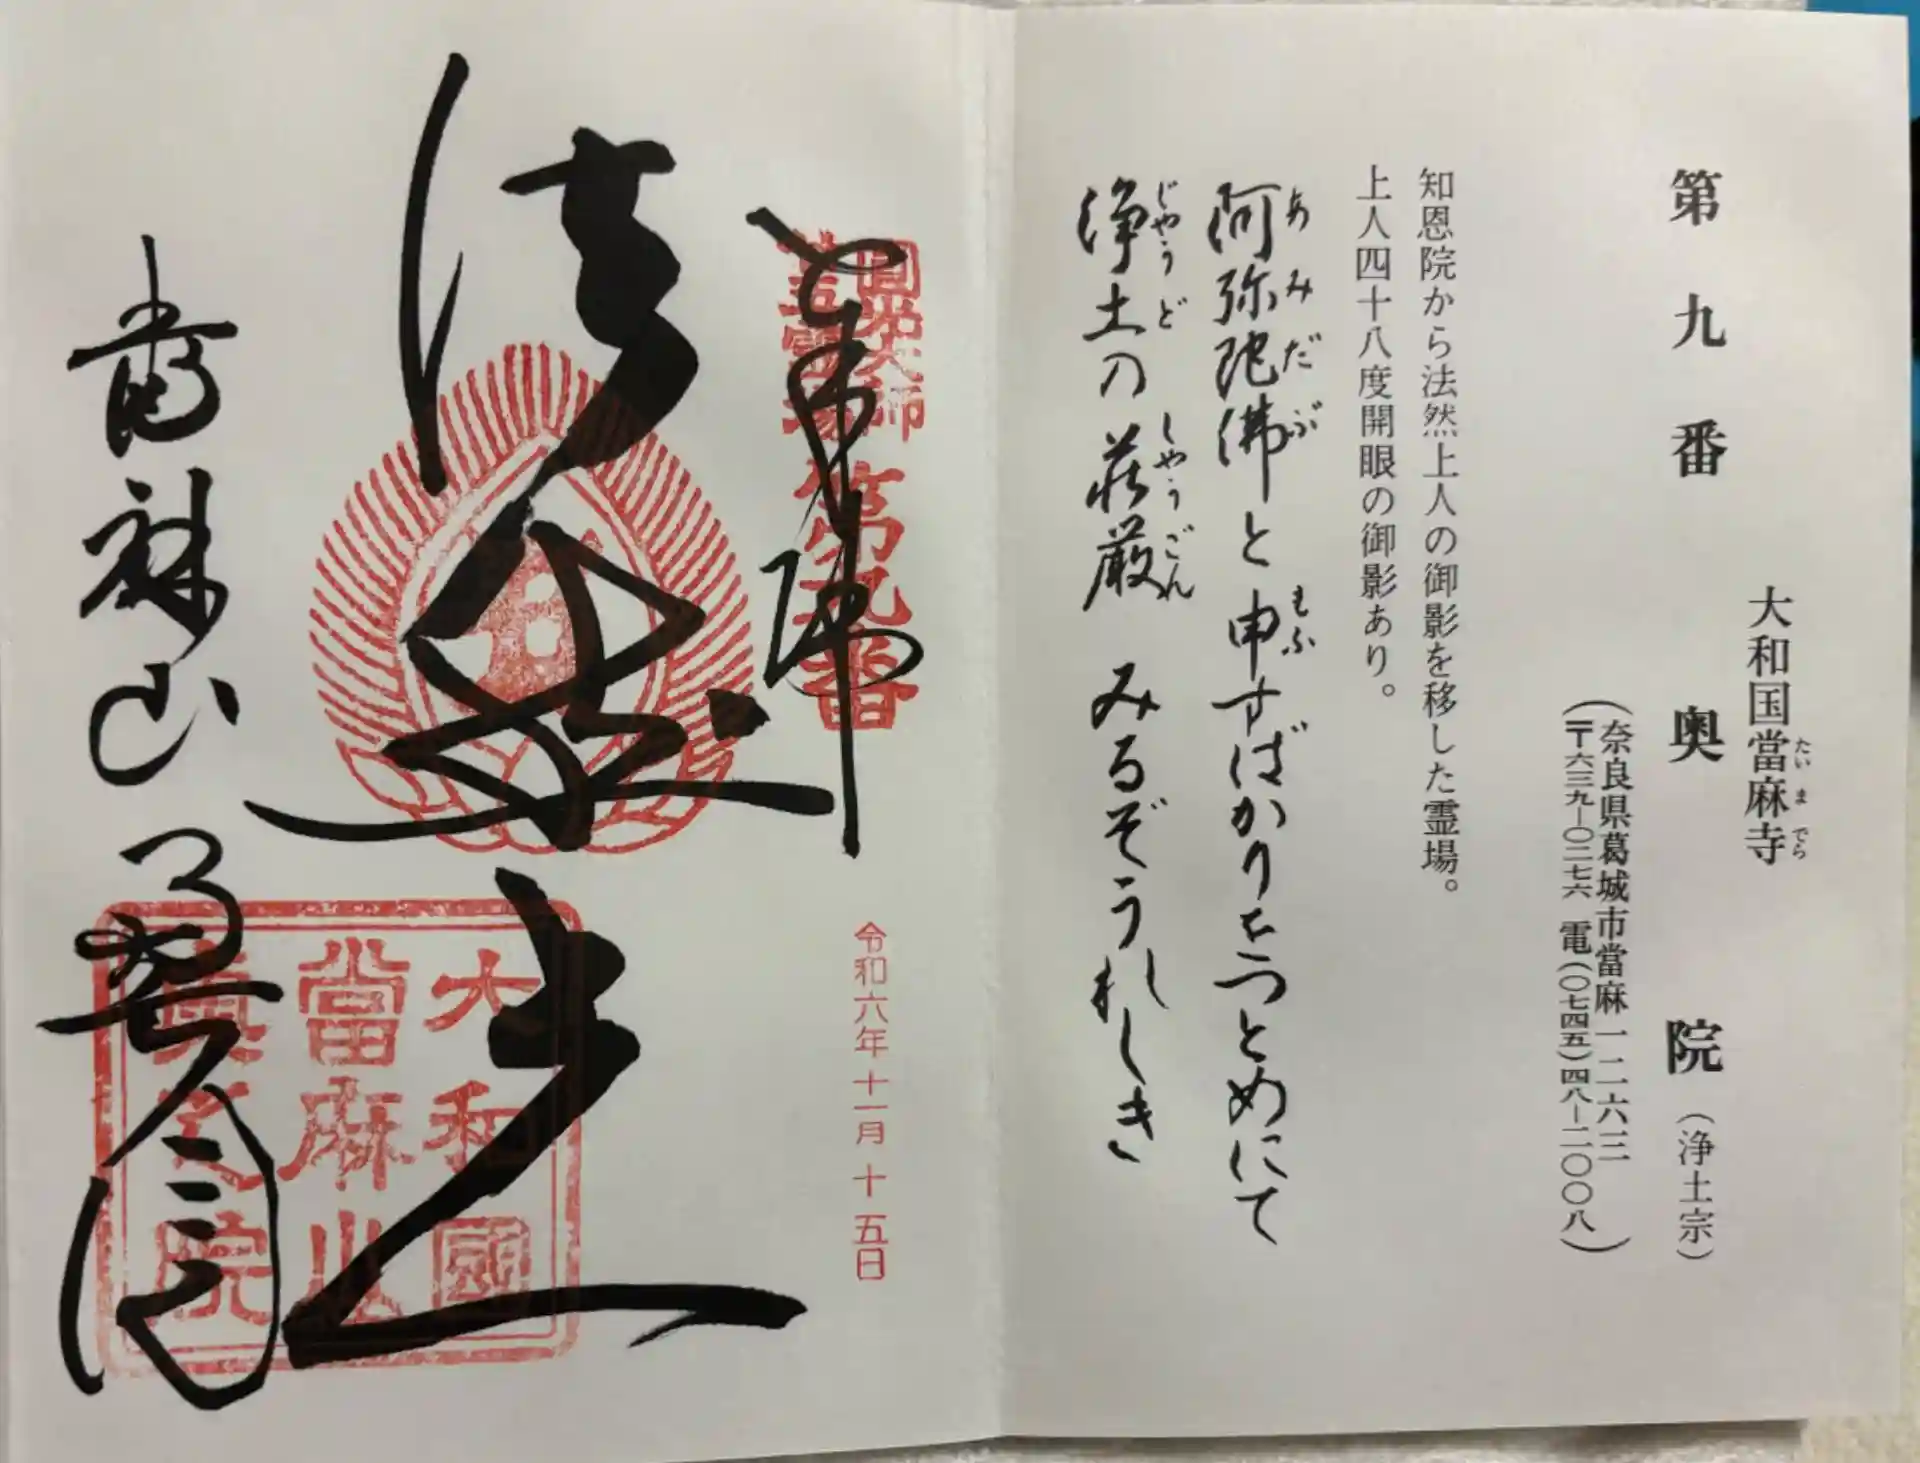 大和国當麻寺
たいまでら
第九番 奥院（浄土宗）
（奈良県葛城市當麻一二六三
〒六三九―〇二七六 電（〇七四五）四八―二〇〇八）
知恩院から法然上人の御影を移した霊場。
上人四十八度開眼の御影あり。
阿弥陀佛と申すばかりをつとめにて
あみだぶ もふ
浄土の荘厳 みるぞうれしき
じやうど しやうごん
圓光大師
廿五霊場
第九番
奉拝
令和六年十一月十五日
法然上人
大和國
當麻山
奥之院
當麻山
奥之院